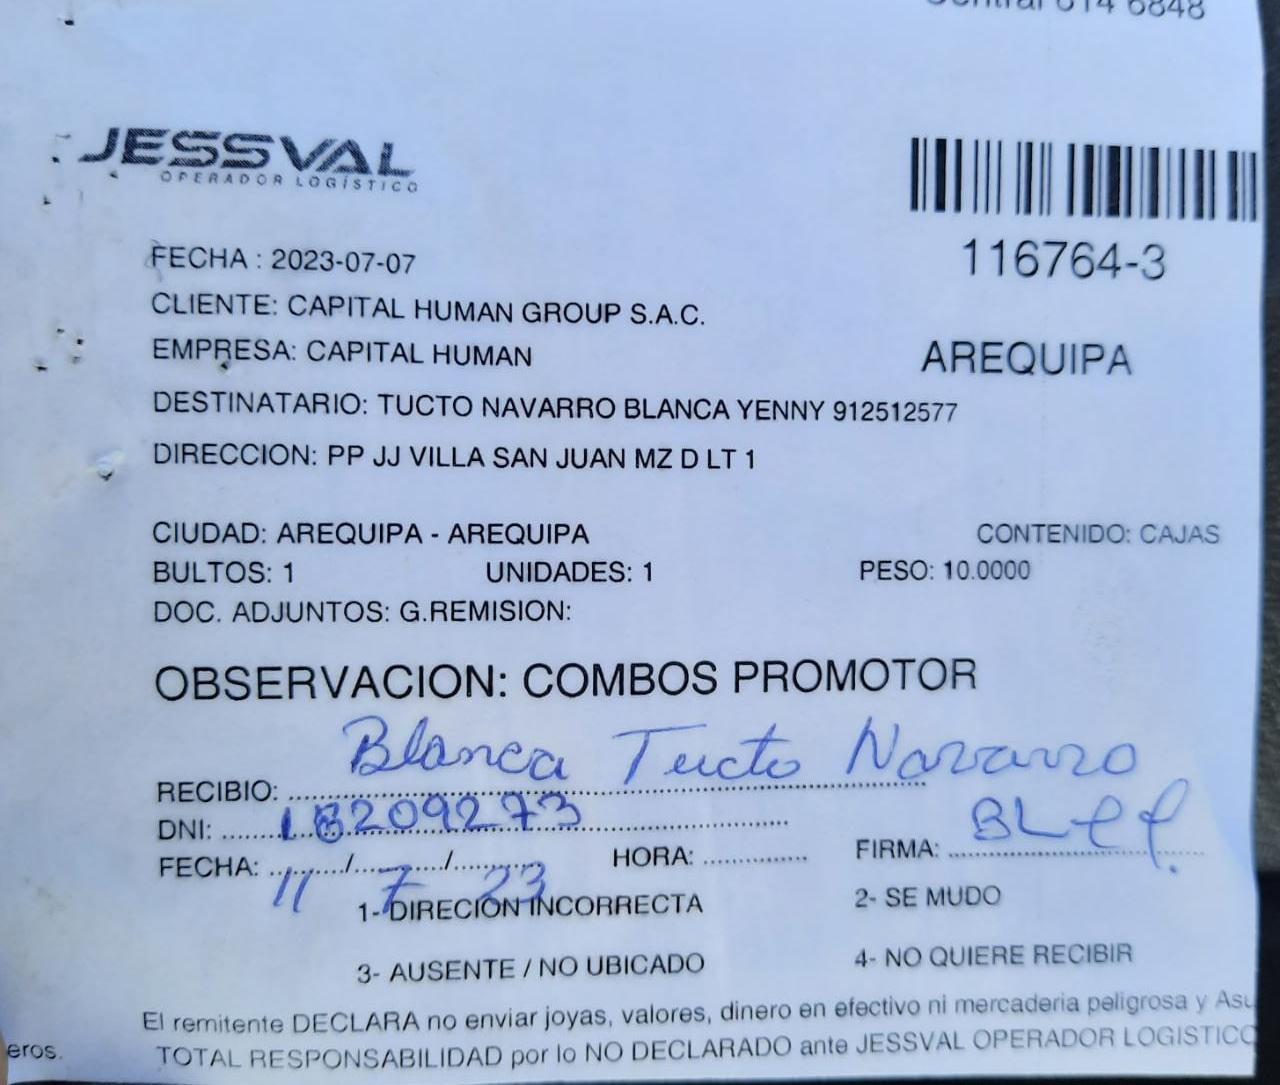 Central 614 6848
JESSVAL
OPERADOR LOGÍSTICO
116764-3
FECHA : 2023-07-07
CLIENTE: CAPITAL HUMAN GROUP S.A.C.
EMPRESA: CAPITAL HUMAN
AREQUIPA
DESTINATARIO: TUCTO NAVARRO BLANCA YENNY 912512577
DIRECCION: PP JJ VILLA SAN JUAN MZ D LT 1
CIUDAD: AREQUIPA - AREQUIPA CONTENIDO: CAJAS
BULTOS: 1 UNIDADES: 1 PESO: 10.0000
DOC. ADJUNTOS: G.REMISION:
OBSERVACION: COMBOS PROMOTOR
RECIBIO: Blanca Tucto Navarro
DNI: 18209273
FECHA: 11/7/23 HORA: FIRMA:
1- DIRECION INCORRECTA 2- SE MUDO
3- AUSENTE / NO UBICADO 4- NO QUIERE RECIBIR
El remitente DECLARA no enviar joyas, valores, dinero en efectivo ni mercaderia peligrosa y Asu
eros. TOTAL RESPONSABILIDAD por lo NO DECLARADO ante JESSVAL OPERADOR LOGISTICO